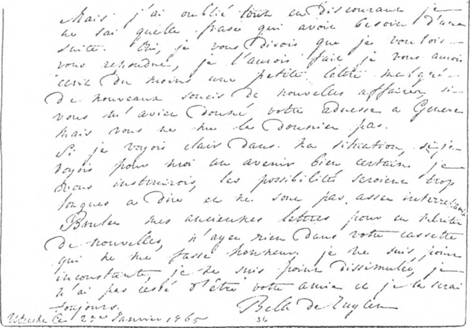 Mais j'ai oublié tout en discourant je
ne sai quelle frase qui avoit besoin d'une
suite. Oui, je vous disois que je voulois
vous repondre, je l'aurois fait je vous aurois
ecrit du moins une petite lettre malgré
de nouveaux soucis de nouvelles affaires, si
vous m'aviez donné votre adresse a Geneve
mais vous ne me la donniez pas.
Si je voyois clair dans ma situation, si je
voyois pour moi un avenir bien certain, je
vous instruirois, les possibilités seroient trop
longues a dire et ne sont pas assez interressantes
Brulez mes anciennes lettres pour en meriter
de nouvelles, n'ayez rien dans votre cassette
qui ne me fasse honneur, je ne suis point
inconstante, je ne suis point dissimulée, je
n'ai pas cessé d'être votre amie et je le serai
toujours.
Belle de Zuylen
Utrecht ce 22e Janvier 1765